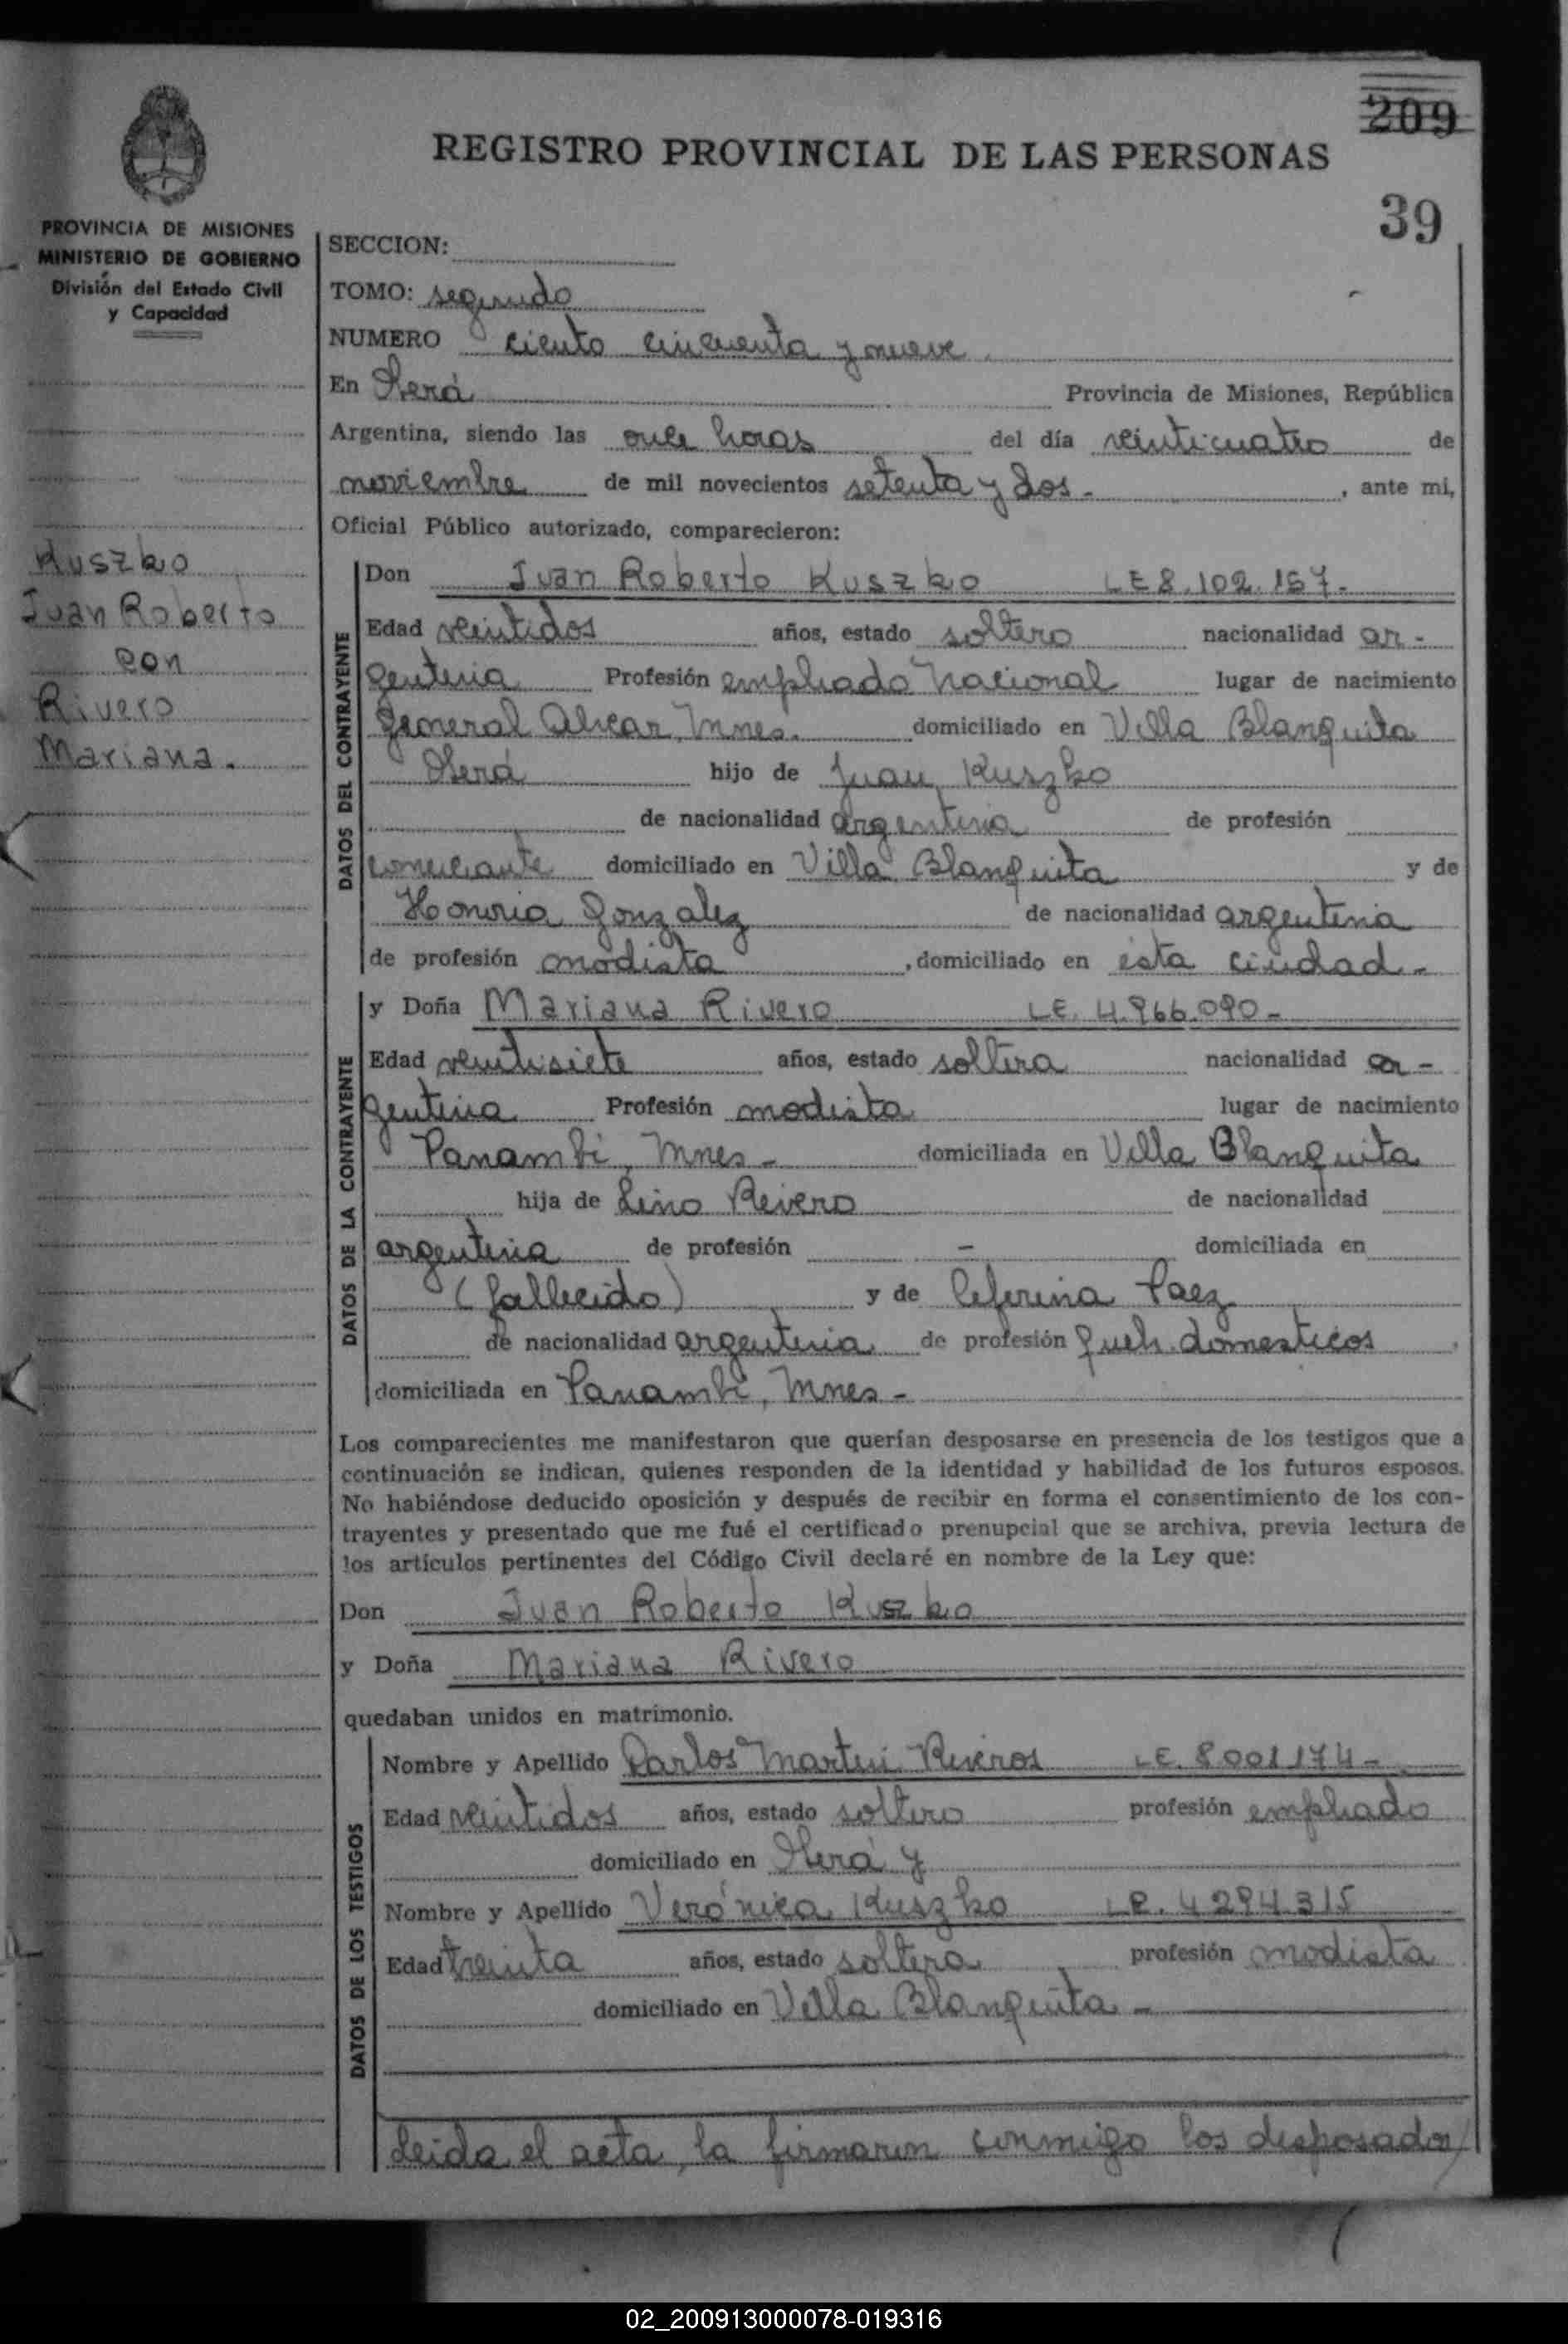 209
REGISTRO PROVINCIAL DE LAS PERSONAS
39
PROVINCIA DE MISIONES
MINISTERIO DE GOBIERNO
División del Estado Civil
y Capacidad
Kuszko
Juan Roberto
con
Rivero
Mariana.
SECCION:
TOMO: segundo
NUMERO ciento cincuenta y nueve.
En Oberá Provincia de Misiones, República
Argentina, siendo las once horas del día veinticuatro de
noviembre de mil novecientos setenta y dos.- , ante mi,
Oficial Público autorizado, comparecieron:
DATOS DEL CONTRAYENTE
Don Juan Roberto Kuszko LE 8.102.157.-
Edad veintidos años, estado soltero nacionalidad ar-
gentina Profesión empleado nacional lugar de nacimiento
General Alvear, Mnes. domiciliado en Villa Blanquita
Oberá hijo de Juan Kuszko
de nacionalidad argentina de profesión
comerciante domiciliado en Villa Blanquita y de
Honoria Gonzalez de nacionalidad argentina
de profesión modista , domiciliado en esta ciudad.-
DATOS DE LA CONTRAYENTE
y Doña Mariana Rivero LE. 4.966.090-
Edad veintisiete años, estado soltera nacionalidad ar-
gentina Profesión modista lugar de nacimiento
Panambi, Mnes- domiciliada en Villa Blanquita
hija de Lino Rivero de nacionalidad
argentina de profesión - domiciliada en
(fallecido) y de Ceferina Paez
de nacionalidad argentina de profesión queh. domesticos
domiciliada en Panambi, Mnes-
Los comparecientes me manifestaron que querían desposarse en presencia de los testigos que a
continuación se indican, quienes responden de la identidad y habilidad de los futuros esposos.
No habiéndose deducido oposición y después de recibir en forma el consentimiento de los con-
trayentes y presentado que me fué el certificado prenupcial que se archiva, previa lectura de
los artículos pertinentes del Código Civil declaré en nombre de la Ley que:
Don Juan Roberto Kuszko
y Doña Mariana Rivero
quedaban unidos en matrimonio.
DATOS DE LOS TESTIGOS
Nombre y Apellido Carlos Martin Riveros LE. 8001174-
Edad veintidos años, estado soltero profesión empleado
domiciliado en Oberá y
Nombre y Apellido Verónica Kuszko LC. 4294315
Edad treinta años, estado soltera profesión modista
domiciliado en Villa Blanquita-
Leida el acta, la firmaron conmigo los desposados
02_200913000078-019316